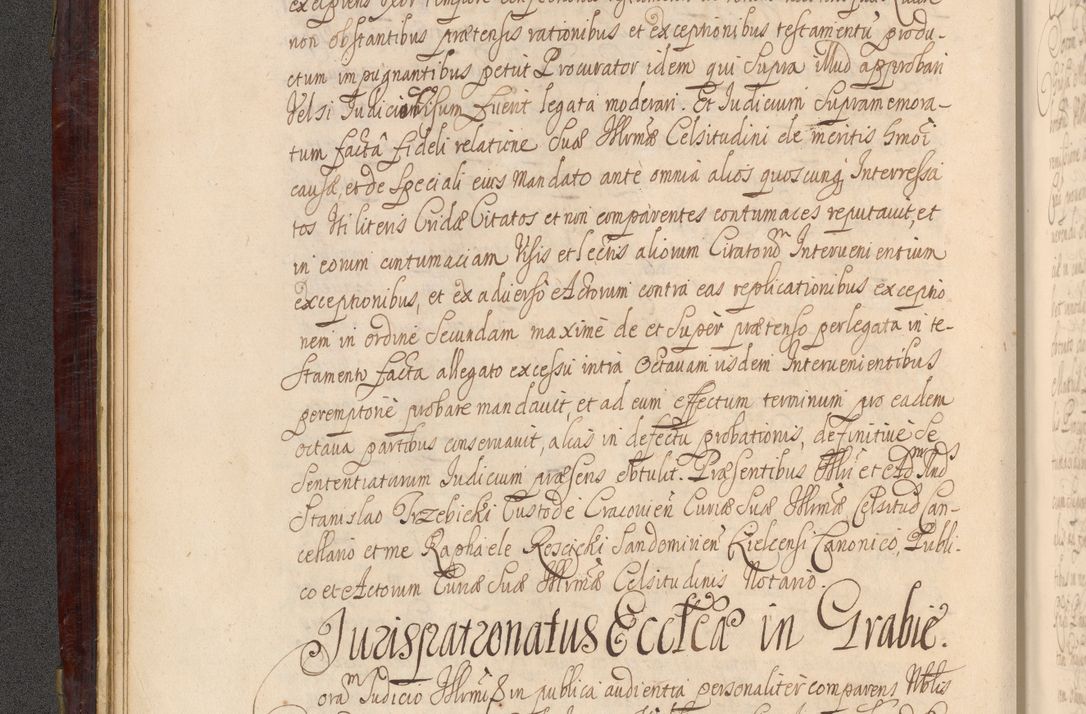 non obstantibus prætensis rationibus et exceptionibus testamentũ produ-
ctum impugnantibus petut Procurator idem qui supra illud approbari
Vel si Judicio visum fuerit legata moderari. Et Judicium Supramemora-
tum factâ fideli relatione Suæ Illrmæ Celsitudini de meritis hmoi
causæ, et de speciali eius Mandato ante omnia alios quoscunq Interressa
tos Iti literis Cridæ Citatos et non comparentes contumaces reputavit, et
in eorum contumaciam Visis et lectis aliorum Citatorum Intervenientium
exceptionibus, et ex adverso Actorum contra eas replicationibus exceptio
nem in ordine Secundam maxime de et super prætenso per legata in te-
stamento facta allegato excessu intra Octavam iisdem Intervenientibus
peremptorie probare mandavit, et ad eum effectum terminum pro eadem
octava partibus conservavit, alias in defectu probationis, definitive se
Sententiaturum Judicium præsens obtulit. Præsentibus Illri et Adm Rndo
Stanislao Trzebicki Custode Cracovien Curiæ Suæ Illrmæ Celsitud Can-
cellario et me Raphaele Rescicki Sandomirien Kielcensi Canonico, Publi-
co et Actorum Curiæ Suæ Illrmæ Celsitudinis Notario.
Jurispatronatus Ecclæ in Grabie.
oram Judicio Illrmi S in publica audientia personaliter comparens Nblis